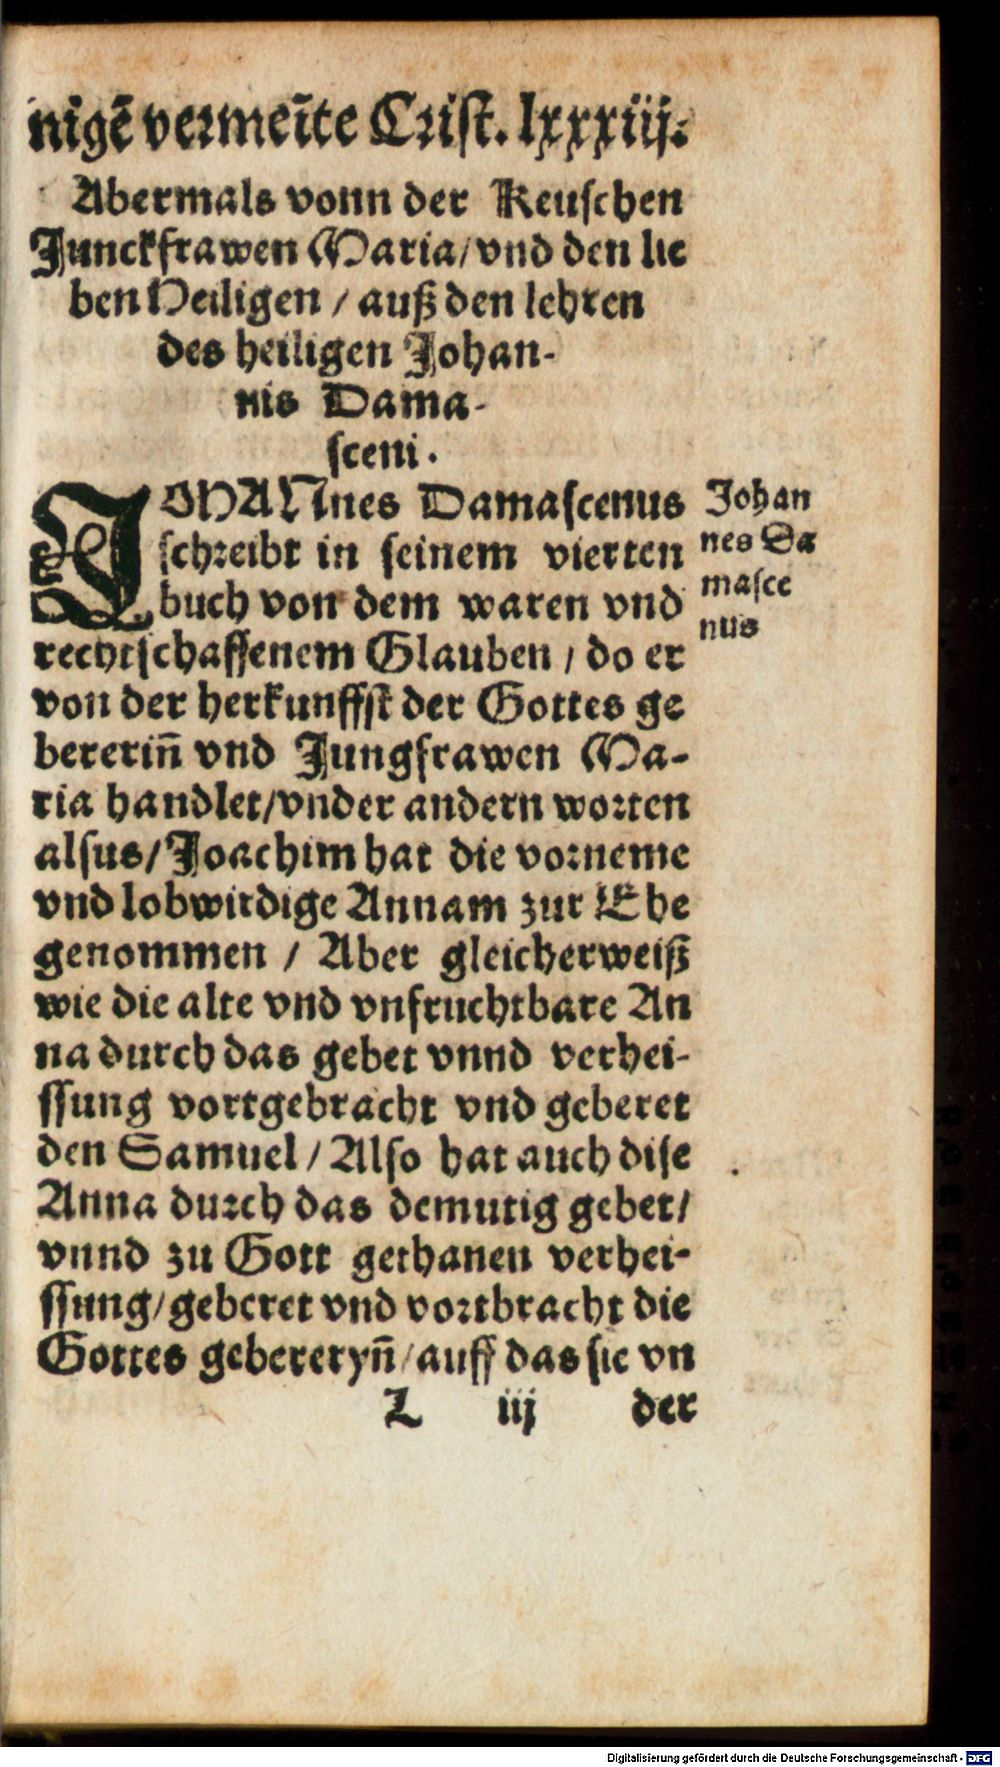 nigē vermeīte Crist. lxxxiij.
Abermals vonn der Keuschen
Junckfrawen Maria/vnd den lie
ben Heiligen / auß den lehren
des heiligen Johan-
nis Dama-
sceni.
JOHANnes Damascenus
schreibt in seinem vierten
buch von dem waren vnd
rechtschaffenem Glauben / do er
von der herkunffst der Gottes ge
bererin̄ vnd Jungfrawen Ma-
ria handlet/vnder andern worten
alsus/Joachim hat die vorneme
vnd lobwirdige Annam zur Ehe
genommen / Aber gleicherweiß
wie die alte vnd vnfruchtbare An
na durch das gebet vnnd verhei-
ssung vortgebracht vnd geberet
den Samuel / Also hat auch dise
Anna durch das demutig gebet/
vnnd zu Gott gethanen verhei-
ssung/geberet vnd vortbracht die
Gottes gebereryn̄/auff das sie vn
L iij der
Johan
nes Da
masce
nus
Digitalisierung gefördert durch die Deutsche Forschungsgemeinschaft - DFG